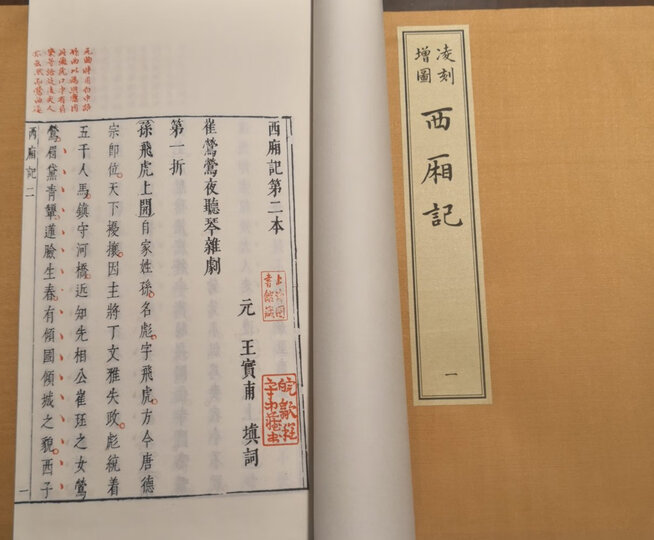 凌刻
增圖
西厢記
一
西廂記第二本
元 王實甫 填詞
崔鶯鶯夜聽琴雜劇
第一折
孫飛虎上開自家姓孫名彪字飛虎方今唐德
宗即位天下擾攘因主將丁文雅失政彪統着
五千人馬鎮守河橋近知先相公崔珏之女鶯
鶯眉黛青顰蓮臉生春有傾國傾城之貌西子
西廂記二
一
上海圖
書館藏